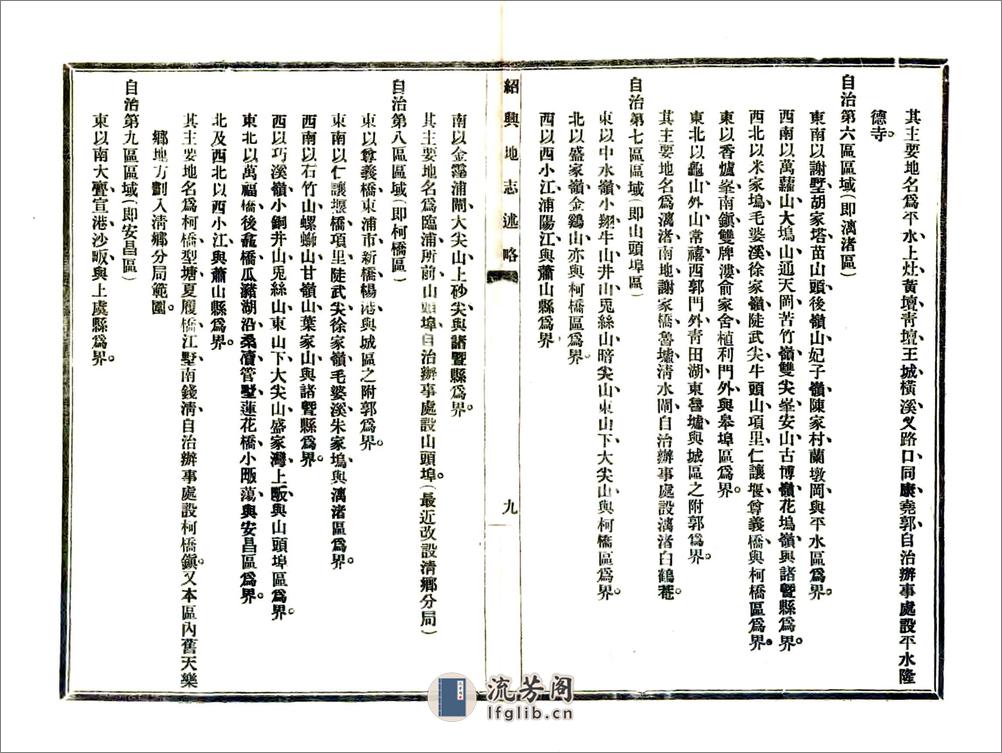 其主要地名爲平水、上灶、黃壇、靑壇、王城、橫溪、叉路口、同康、堯郭、自治辦事處設平水隆
德寺。
自治第六區區域(卽漓渚區)
東南以謝墅、胡家塔、苗山頭、後嶺山、妃子嶺、陳家村、蘭墩岡、與平水區爲界。
西南以萬蘿山、大塢山、通天岡、苦竹嶺、雙尖峯、安山、古博嶺、花塢嶺、與諸暨縣爲界。
西北以米家塢、毛婆溪、徐家嶺、陡武尖、牛頭山、項里、仁讓堰、尊義橋、與柯橋區爲界。
東以香爐峯、南鎭、雙牌、漊俞家舍、植利門外、與皋埠區爲界。
東北以龜山外山、常禧西郭門外、靑田湖、東魯墟、與城區之附郭爲界。
其主要地名爲漓渚、南地、謝家橋、魯墟、淸水閘、自治辦事處設漓渚白鶴菴。
自治第七區區域(卽山頭埠區)
東以中水嶺、小翔牛山、井山、兎絲山、暗尖山、東山下、大尖山、與柯橋區爲界。
北以盛家嶺、金鷄山、亦與柯橋區爲界。
西以西小江、浦陽江、與蕭山縣爲界。
紹興地志述略
九
南以金霪浦閘、大尖山、上砂尖、與諸暨縣爲界。
其主要地名爲臨浦、所前、山頭埠、自治辦事處設山頭埠。(最近改設淸鄕分局)
自治第八區區域(卽柯橋區)
東以尊義橋、東浦市、新橋、楊港、與城區之附郭爲界。
東南以仁讓堰橋、項里、陡武尖、徐家嶺、毛婆溪、朱家塢、與漓渚區爲界。
西南以石竹山、螺螄山、甘嶺山、葉家山、與諸暨縣爲界。
西以巧溪嶺、小銅井山、兎絲山、東山下、大尖山、盛家灣、上畈、與山頭埠區爲界。
東北以萬福橋、後龕橋、瓜瀦湖沿、桑瀆、管墅、蓮花橋、小畈蕩、與安昌區爲界。
北及西北以西小江、與蕭山縣爲界。
其主要地名爲柯橋、型塘、夏履橋、江墅、南錢淸、自治辦事處設柯橋鎭。又本區內舊天樂
鄕地方劃入淸鄕分局範圍。
自治第九區區域(卽安昌區)
東以南大壟、宣港、沙畈、與上虞縣爲界。
流芳阁
lfglib.cn